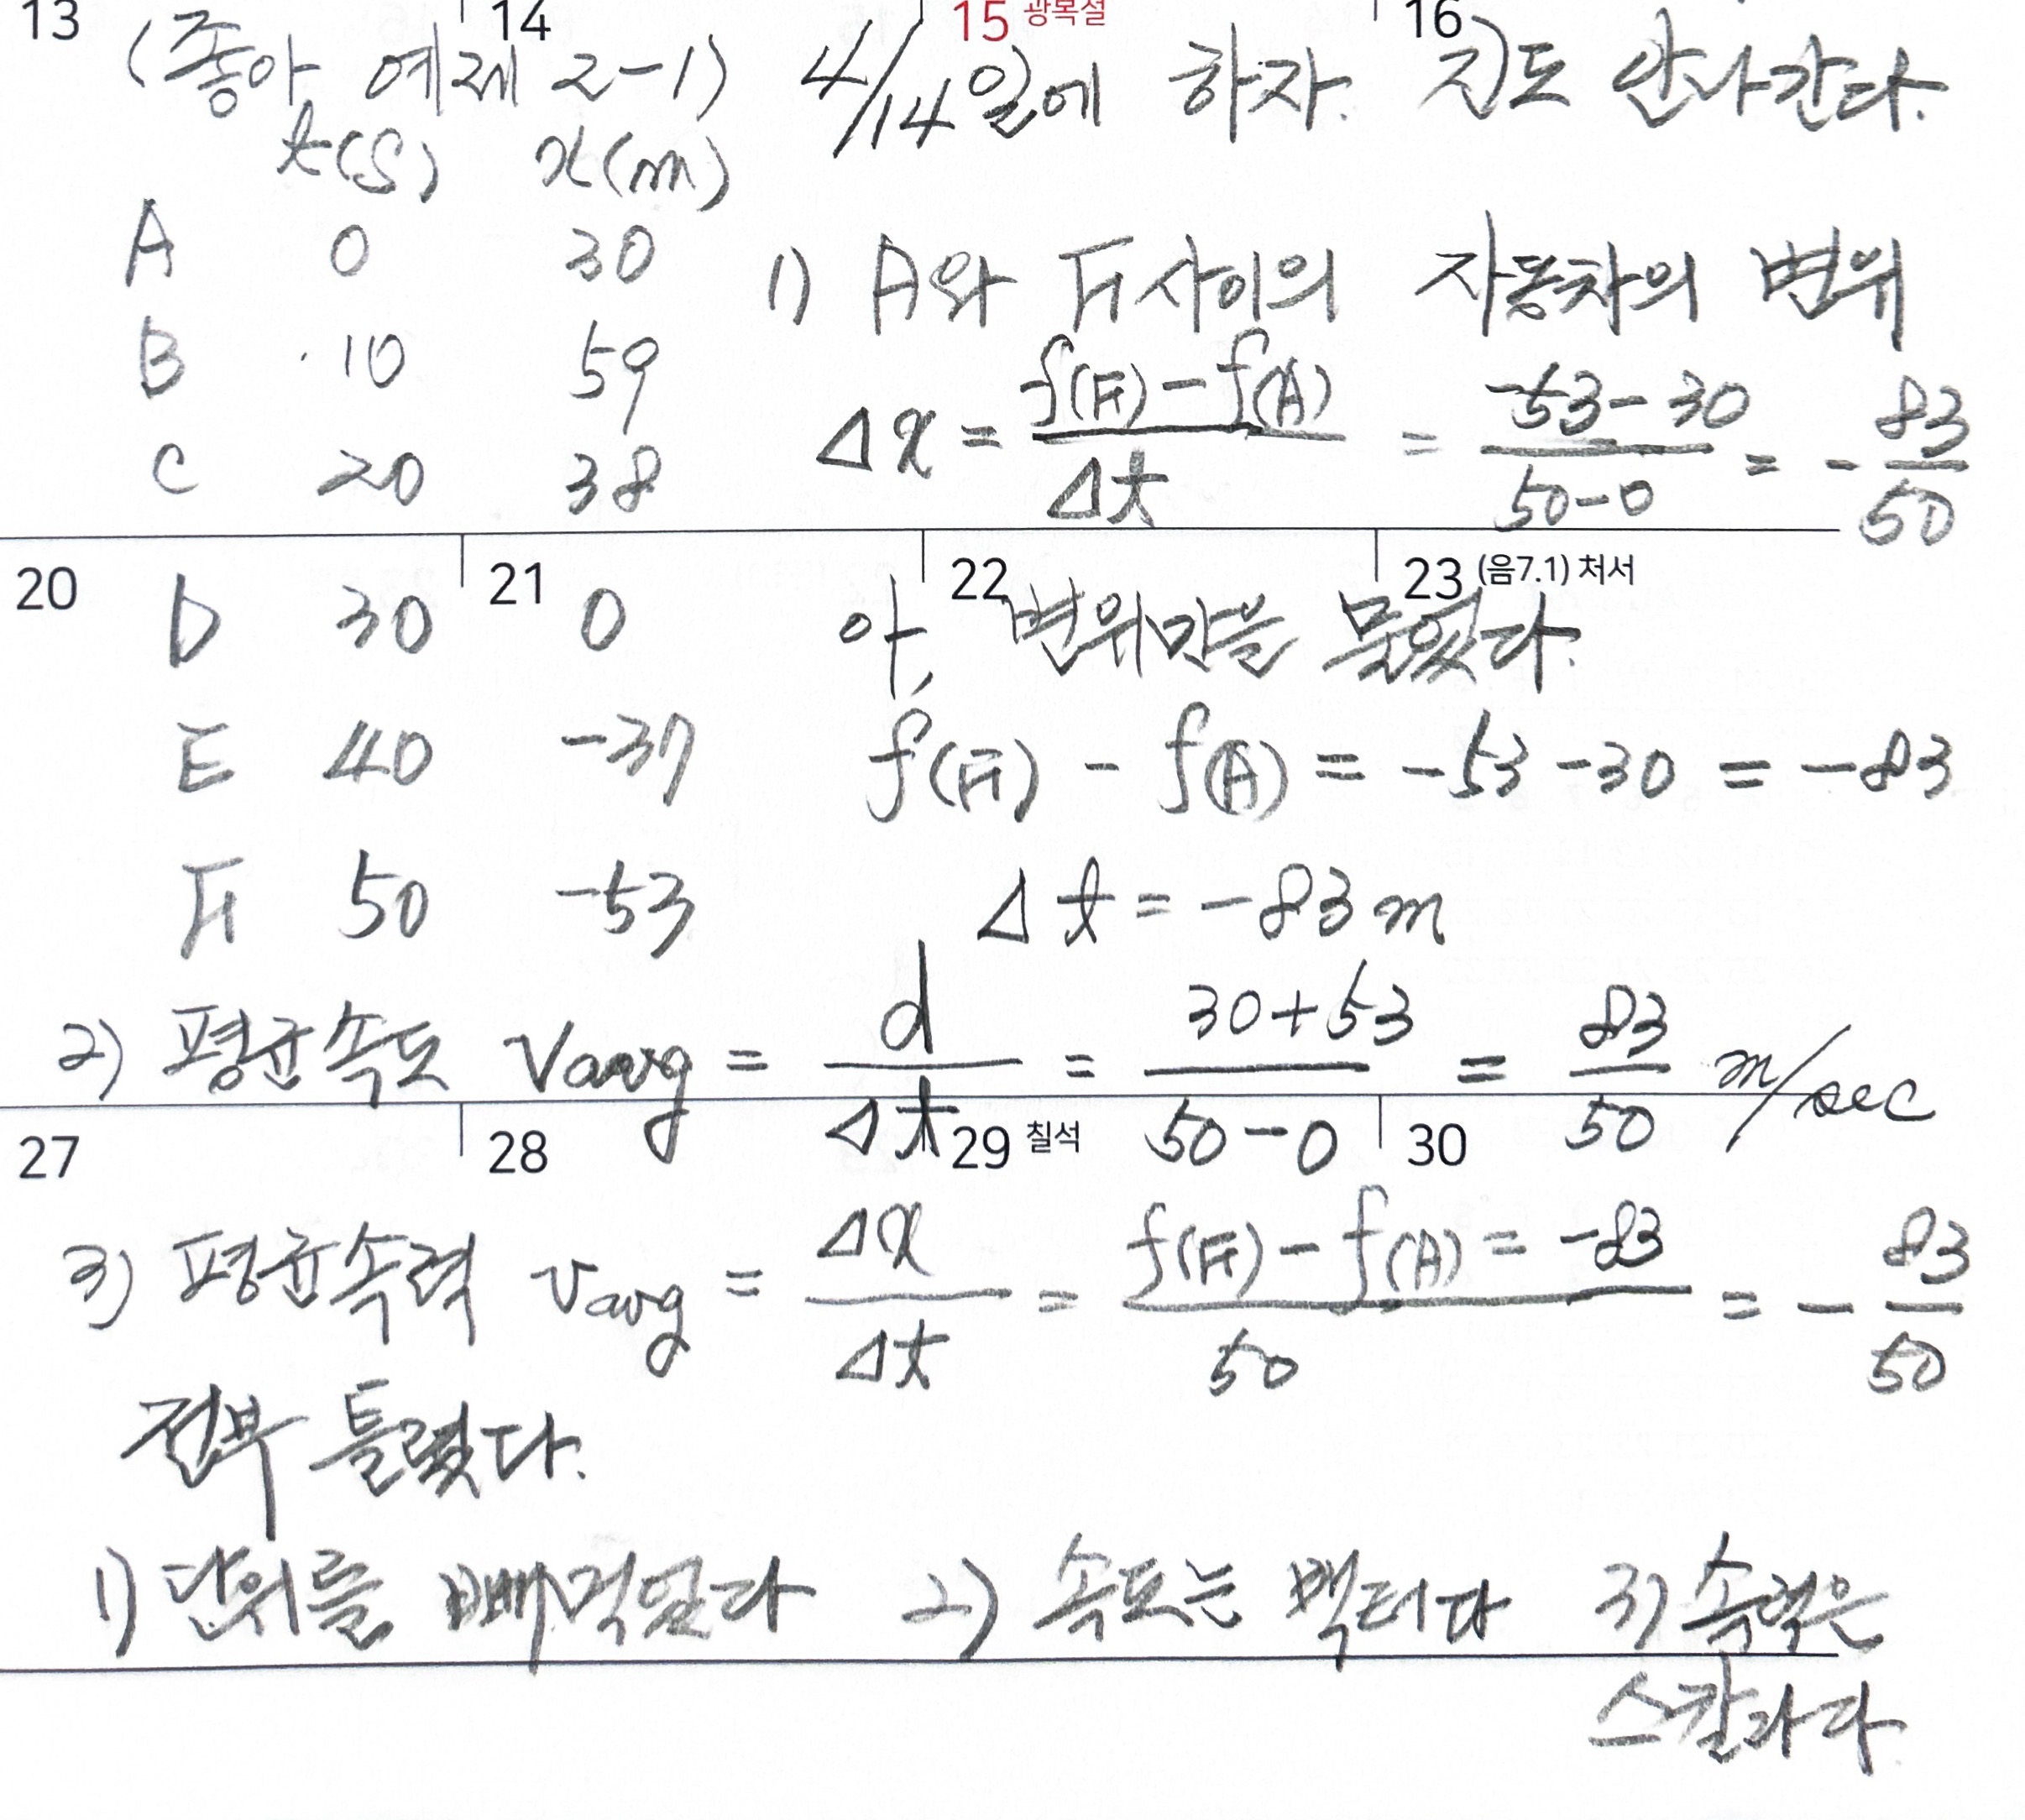 13 14 15 광복절 16
(좋아 예제 2-1) 4/14일에 하자. 진도 안나간다.
t(s) x(m)
A 0 30
1) A와 F사이의 자동차의 변위
B 10 59
Δx = f(F) - f(A) / Δt = -53-30 / 50-0 = - 83/50
C 20 38
20 21 22 23 (음7.1) 처서
D 30 0 아, 변위만을 물었다.
E 40 -37 f(F) - f(A) = -53 -30 = -83
F 50 -53 Δt = -83m
2) 평균속도 Vavg = d/Δt = 30+53 / 50-0 = 83/50 m/sec
27 28 29 칠석 30
3) 평균속력 vavg = Δx/Δt = f(F) - f(A) = -83 / 50 = - 83/50
전부 틀렸다.
1) 단위를 빼먹었다 2) 속도는 벡터다 3) 속력은
스칼라다.